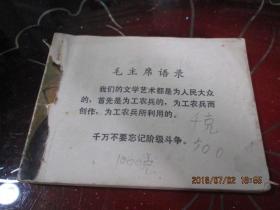 毛主席语录
我们的文学艺术都是为人民大众
的，首先是为工农兵的，为工农兵而
创作，为工农兵所利用的。
千克
500
千万不要忘记阶级斗争。
1000克
2016/07/02